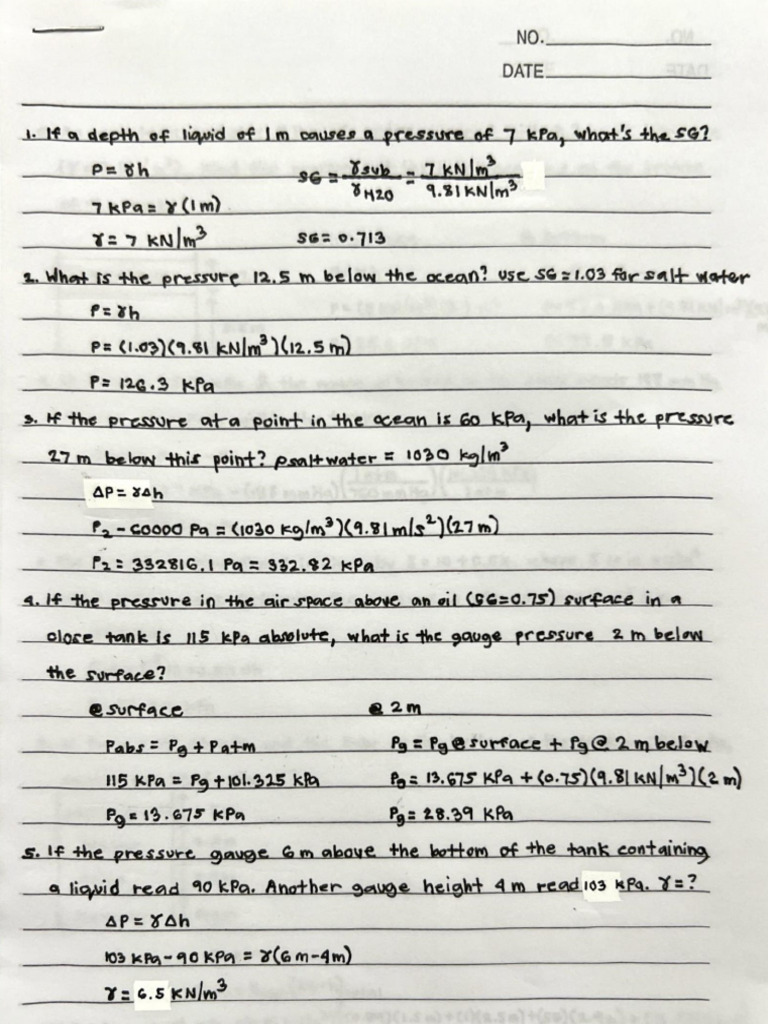 NO.
DATE
1. If a depth of liquid of 1m causes a pressure of 7 kPa, what's the SG?
P = γh SG = γsub/γH2O = 7 KN/m³/9.81 KN/m³
7 kPa = γ(1m)
γ = 7 KN/m³ SG = 0.713
2. What is the pressure 12.5 m below the ocean? use SG = 1.03 for salt water
P = γh
P = (1.03)(9.81 KN/m³)(12.5m)
P = 126.3 kPa
3. If the pressure at a point in the ocean is 60 kPa, what is the pressure
27 m below this point? ρsaltwater = 1030 kg/m³
ΔP = γΔh
P₂ - 60000 Pa = (1030 kg/m³)(9.81 m/s²)(27m)
P₂ = 332816.1 Pa = 332.82 kPa
4. If the pressure in the air space above an oil (SG=0.75) surface in a
close tank is 115 kPa absolute, what is the gauge pressure 2 m below
the surface?
@ surface @ 2m
Pabs = Pg + Patm Pg = Pg@surface + Pg@2m below
115 kPa = Pg + 101.325 kPa Pg = 13.675 kPa + (0.75)(9.81 KN/m³)(2 m)
Pg = 13.675 kPa Pg = 28.39 kPa
5. If the pressure gauge 6m above the bottom of the tank containing
a liquid read 90 kPa. Another gauge height 4m read 103 kPa. γ = ?
ΔP = γΔh
103 kPa - 90 kPa = γ(6m-4m)
γ = 6.5 KN/m³